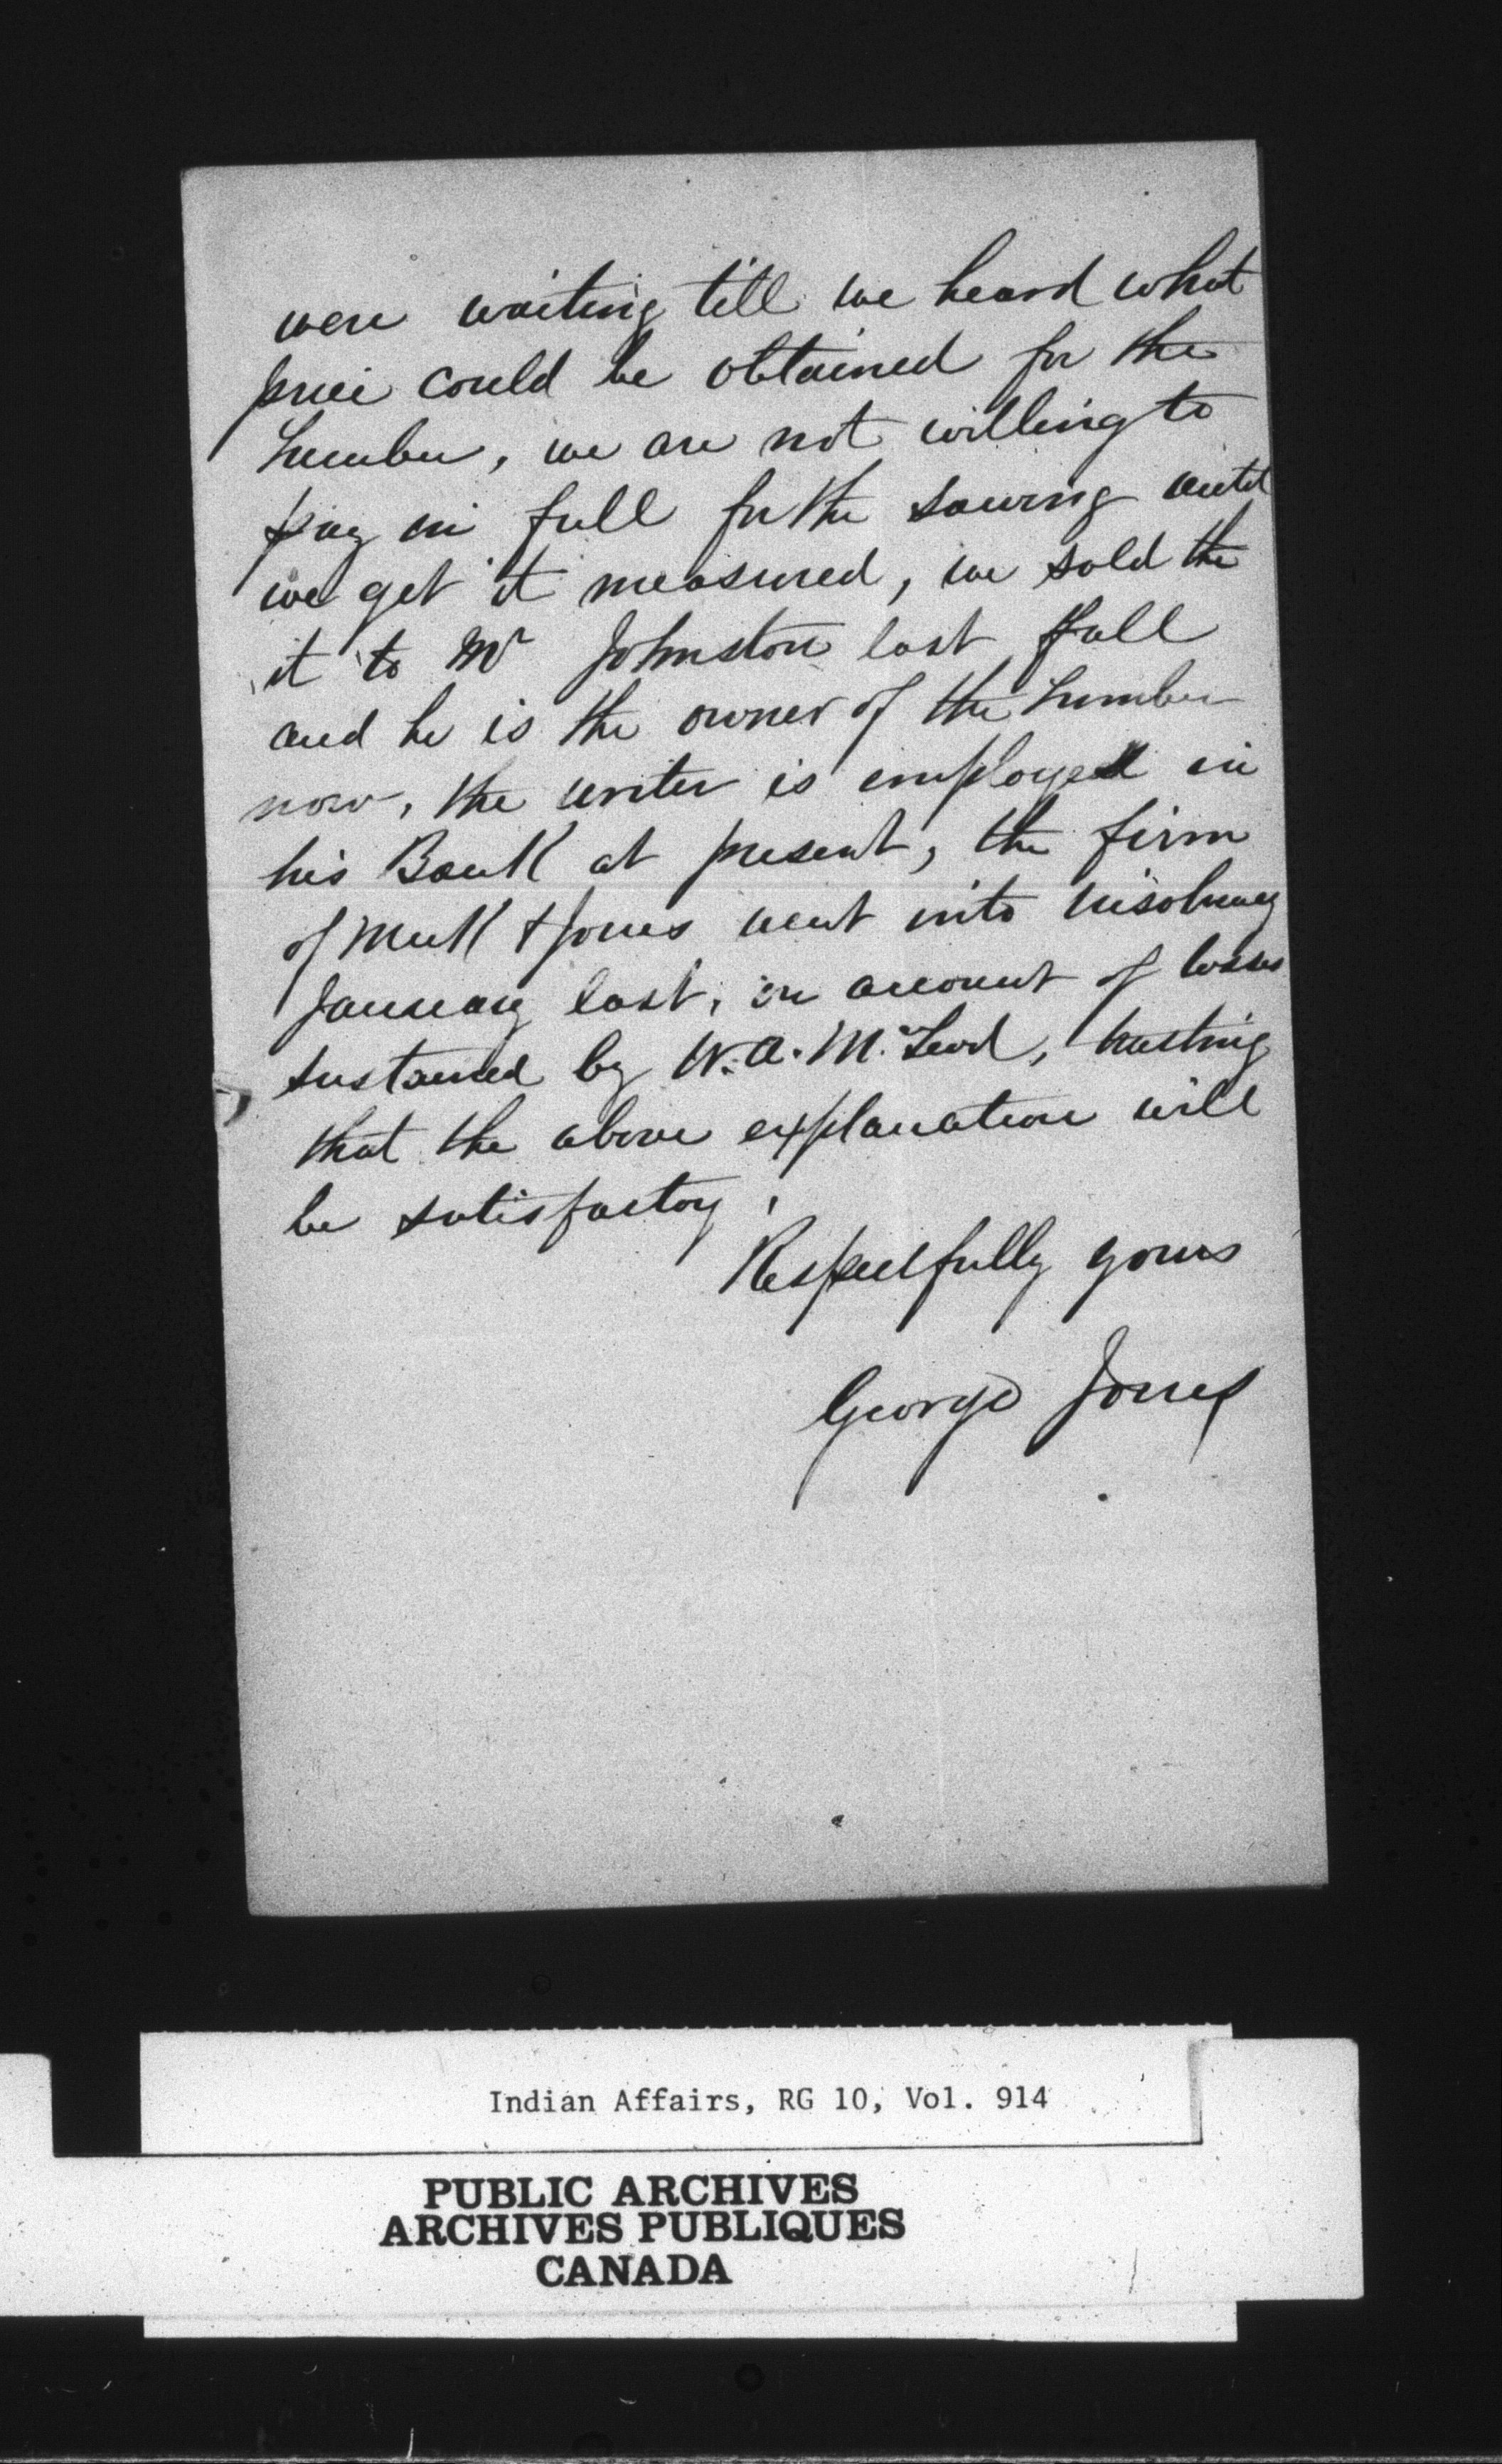 were waiting till we heard what
price could be obtained for the
Lumber, we are not willing to
pay in full for the sawing until
we get it measured, we sold the
it to Mr Johnston last fall
and he is the owner of the Lumber
now, the writer is employed in
his Bank at present, the firm
of & Jones went into insolvency
January last, on account of losses
sustained by W. A. McLeod, trusting
that the above explanation will
be satisfactory,
Respectfully yours
George Jones
Indian Affairs, RG 10, Vol. 914
PUBLIC ARCHIVES
ARCHIVES PUBLIQUES
CANADA